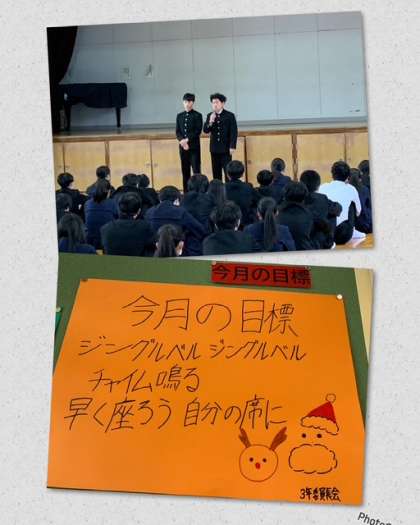 今月の目標
今月の目標
ジングルベル ジングルベル
チャイム鳴る
早く座ろう 自分の席に